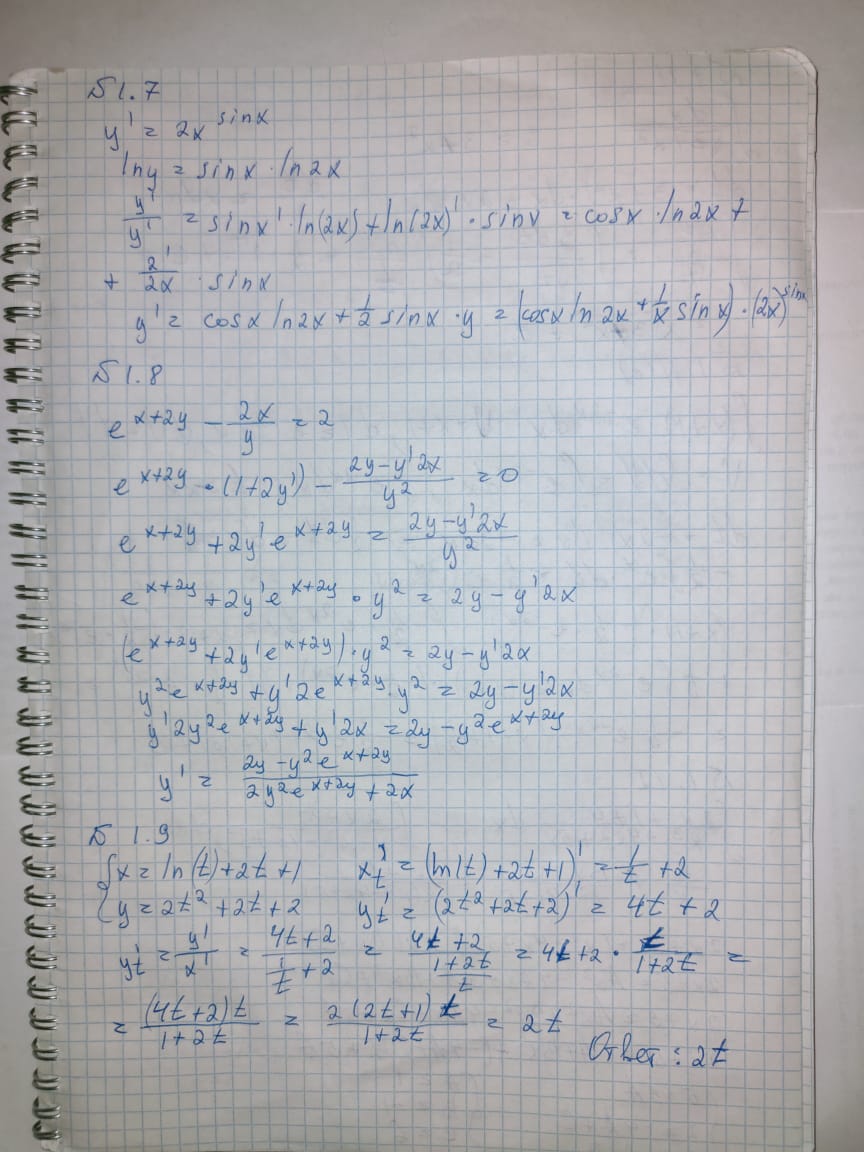 Б 1.7
y' = 2x^(sinx)
lny = sinx · ln2x
y'/y' = sinx' · ln(2x) + ln(2x)' · sinx = cosx · ln2x +
+ 2'/2x · sinx
y' = cosx ln2x + 1/2 sinx · y = (cosx ln2x + 1/x sinx) · (2x)^(sinx)
Б 1.8
e^(x+2y) - 2x/y = 2
e^(x+2y) · (1+2y') - (2y-y'2x)/y² = 0
e^(x+2y) + 2y'e^(x+2y) = (2y-y'2x)/y²
e^(x+2y) + 2y'e^(x+2y) · y² = 2y - y'2x
(e^(x+2y) + 2y'e^(x+2y)) · y² = 2y - y'2x
y²e^(x+2y) + y'2e^(x+2y) · y² = 2y - y'2x
y'2y²e^(x+2y) + y'2x = 2y - y²e^(x+2y)
y' = (2y - y²e^(x+2y))/(2y²e^(x+2y) + 2x)
Б 1.9
{x = ln(t) + 2t + 1 x't = (ln(t) + 2t + 1)' = 1/t + 2
{y = 2t² + 2t + 2 y't = (2t² + 2t + 2)' = 4t + 2
y't = y'/x' = (4t+2)/(1/t + 2) = (4t+2)/((1+2t)/t) = 4t+2 · t/(1+2t) =
= (4t+2)t/(1+2t) = 2(2t+1)t/(1+2t) = 2t
Ответ: 2t